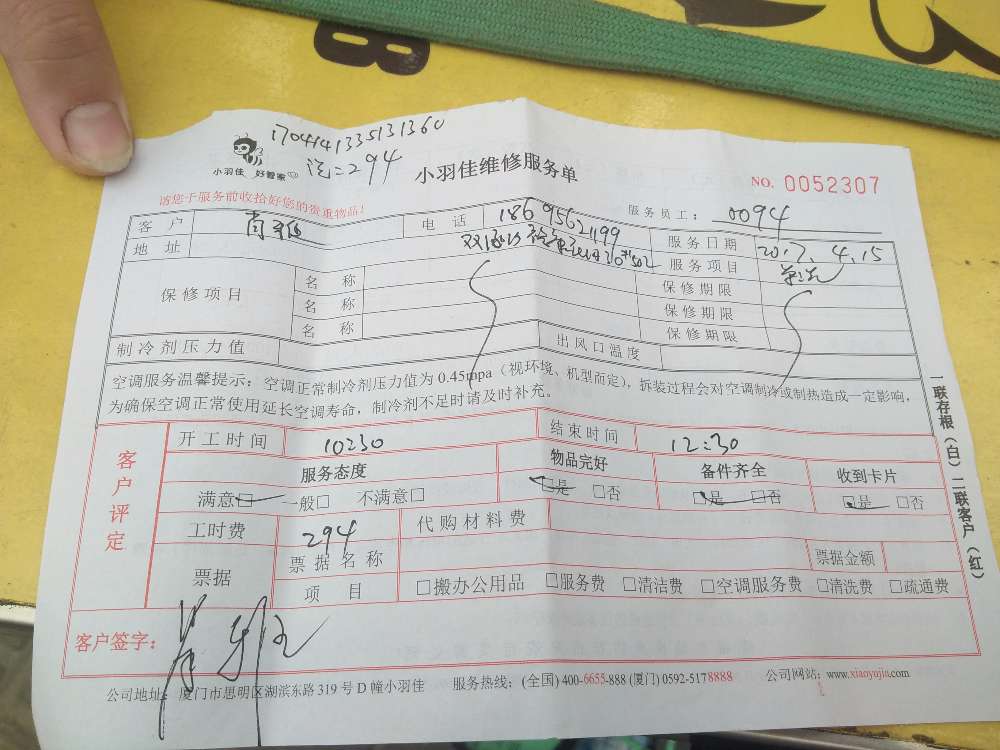 B
1704141335131360
小羽佳 好管家
294
小羽佳维修服务单
NO. 0052307
请您于服务前收拾好您的贵重物品!
服务员工: 0094
客 户 电 话 18695621199 服务日期 2017.4.15
地 址 服务项目
保修项目 名 称 保修期限
名 称 保修期限
名 称 保修期限
制冷剂压力值 出风口温度
空调服务温馨提示:空调正常制冷剂压力值为0.45mpa(视环境、机型而定),拆装过程会对空调制冷或制热造成一定影响,
为确保空调正常使用延长空调寿命,制冷剂不足时请及时补充。
一联存根(白)二联客户(红)
客户评定
开工时间 10:30 结束时间 12:30
服务态度 物品完好 备件齐全 收到卡片
满意□ 一般□ 不满意□ □是 □否 □是 □否 □是 □否
工时费 294 代购材料费
票据 票据名称 票据金额
项 目 □搬办公用品 □服务费 □清洁费 □空调服务费 □清洗费 □疏通费
客户签字:
公司地址: 厦门市思明区湖滨东路319号D幢小羽佳 服务热线:(全国)400-6655-888 (厦门)0592-5178888 公司网站:www.xiaoyujia.com